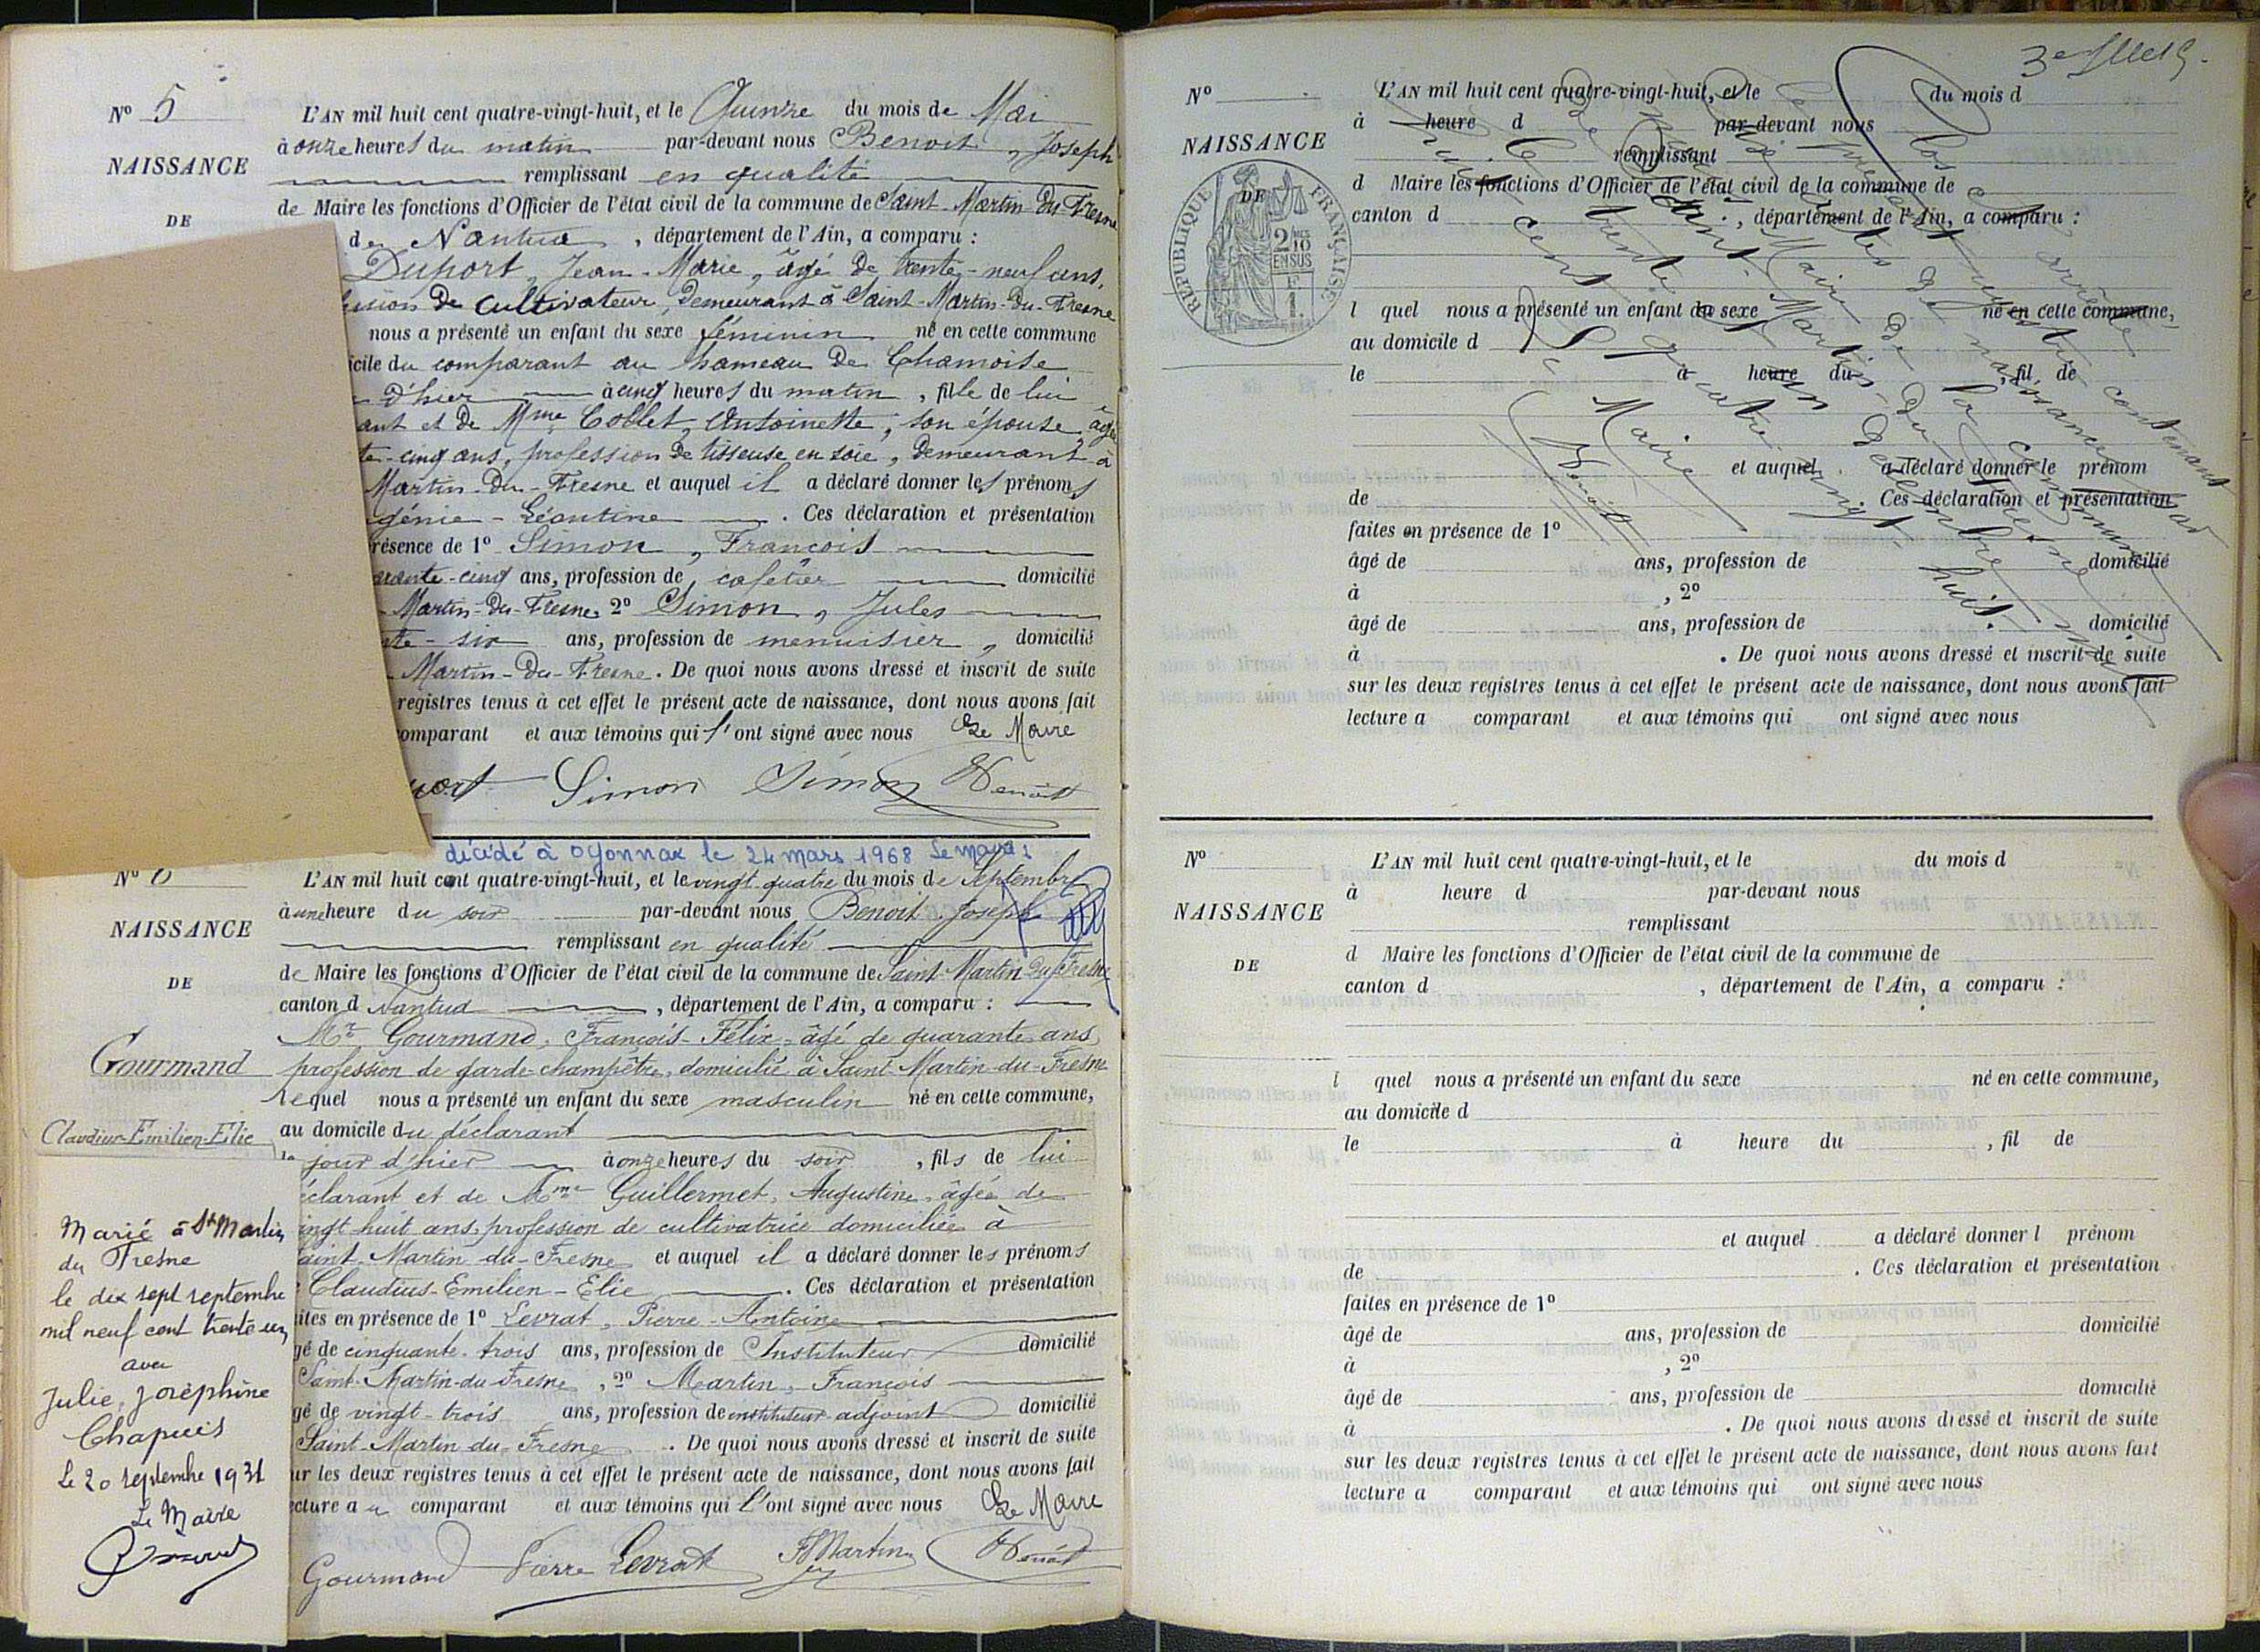 N° 5
NAISSANCE
DE
L'AN mil huit cent quatre-vingt-huit, et le Quinze du mois de Mai
à onze heures du matin par-devant nous Benoit, Joseph
remplissant en qualité
de Maire les fonctions d'Officier de l'état civil de la commune de Saint-Martin-du-Fresne
de Nantua, département de l'Ain, a comparu :
Duport, Jean-Marie, âgé de trente-neuf ans,
cultivateur, demeurant à Saint-Martin-du-Fresne
nous a présenté un enfant du sexe féminin né en cette commune
icile du comparant au hameau de Chamoise
d'hier à cinq heures du matin, fille de lui
ant et de Mme Collet, Antoinette, son épouse, âgée
te-cinq ans, profession de tisseuse en soie, demeurant à
Martin-du-Fresne et auquel il a déclaré donner les prénoms
génie-Léontine. Ces déclaration et présentation
résence de 1° Simon, François
arante-cinq ans, profession de cafetier domicilié
-Martin-du-Fresne, 2° Simon, Jules
te-six ans, profession de menuisier, domicilié
Martin-du-Fresne. De quoi nous avons dressé et inscrit de suite
registres tenus à cet effet le présent acte de naissance, dont nous avons fait
omparant et aux témoins qui l'ont signé avec nous Le Maire
port Simon Simon Benoit
décédé à Oyonnax le 24 mars 1968 Le maire :
N° 6
NAISSANCE
DE
Gourmand
Claudius-Emilien-Elie
L'AN mil huit cent quatre-vingt-huit, et le vingt-quatre du mois de Septembre
à une heure du soir par-devant nous Benoit Joseph
remplissant en qualité
de Maire les fonctions d'Officier de l'état civil de la commune de Saint-Martin-du-Fresne
canton d Nantua, département de l'Ain, a comparu :
Mr Gourmand, François-Félix, âgé de quarante ans,
profession de garde-champêtre, domicilié à Saint-Martin-du-Fresne
lequel nous a présenté un enfant du sexe masculin né en cette commune,
au domicile du déclarant
le jour d'hier à onze heures du soir, fils de lui
éclarant et de Mme Guillermet, Augustine, âgée de
ingt huit ans, profession de cultivatrice domiciliée à
aint-Martin-du-Fresne et auquel il a déclaré donner les prénoms
Claudius-Emilien-Elie. Ces déclaration et présentation
ites en présence de 1° Levrat, Pierre-Antoine
gé de cinquante-trois ans, profession de Instituteur domicilié
Saint-Martin-du-Fresne, 2° Martin, François
gé de vingt-trois ans, profession de instituteur-adjoint domicilié
Saint-Martin-du-Fresne. De quoi nous avons dressé et inscrit de suite
ur les deux registres tenus à cet effet le présent acte de naissance, dont nous avons fait
ecture au comparant et aux témoins qui l'ont signé avec nous Le Maire
Gourmand Pierre Levrat Martin Benoit
Marié à St Martin
du Fresne
le dix sept septembre
mil neuf cent trente un
avec
Julie, Joséphine
Chapuis
Le 20 septembre 1931
Le Maire
N°
NAISSANCE
DE
RÉPUBLIQUE FRANÇAISE
L'AN mil huit cent quatre-vingt-huit, et le du mois d
à heure d par-devant nous
remplissant
d Maire les fonctions d'Officier de l'état civil de la commune de
canton d , département de l'Ain, a comparu :
l quel nous a présenté un enfant du sexe né en cette commune,
au domicile d
le à heure du , fil de
et auquel a déclaré donner le prénom
de . Ces déclaration et présentation
faites en présence de 1°
âgé de ans, profession de domicilié
à , 2°
âgé de ans, profession de domicilié
à . De quoi nous avons dressé et inscrit de suite
sur les deux registres tenus à cet effet le présent acte de naissance, dont nous avons fait
lecture a comparant et aux témoins qui ont signé avec nous
Clos et arrêté
le présent registre contenant
actes de naissances
Maire de la commune
de Saint-Martin-du-Fresne
le trente un décembre
huit cent quatre vingt huit.
Le Maire
Benoit
N°
NAISSANCE
DE
L'AN mil huit cent quatre-vingt-huit, et le du mois d
à heure d par-devant nous
remplissant
d Maire les fonctions d'Officier de l'état civil de la commune de
canton d , département de l'Ain, a comparu :
l quel nous a présenté un enfant du sexe né en cette commune,
au domicile d
le à heure du , fil de
et auquel a déclaré donner l prénom
de . Ces déclaration et présentation
faites en présence de 1°
âgé de ans, profession de domicilié
à , 2°
âgé de ans, profession de domicilié
à . De quoi nous avons dressé et inscrit de suite
sur les deux registres tenus à cet effet le présent acte de naissance, dont nous avons fait
lecture a comparant et aux témoins qui ont signé avec nous